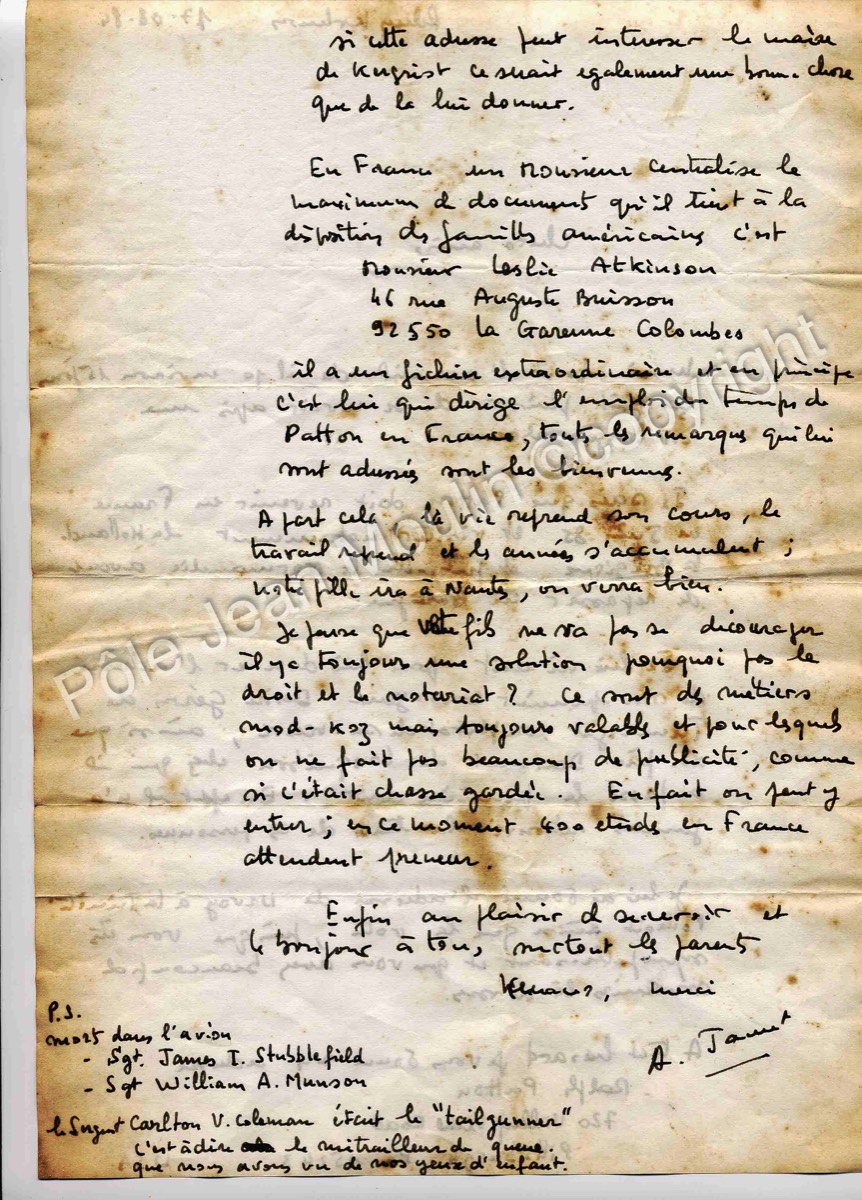 si cette adresse peut interesser le maire
de Kergrist ce serait egalement une bonne chose
que de la lui donner.
En France un Monsieur centralise le
maximum de document qu'il tient à la
disposition des familles américaines c'est
Monsieur Leslie Atkinson
46 rue Auguste Buisson
92550 La Garenne Colombes
il a un fichier extraordinaire et en principe
c'est lui qui dirige l'emploi du temps de
Patton en France, toutes les remarques qui lui
sont adressés sont les bienvenues.
A part cela, la vie reprend son cours, le
travail reprend et les années s'accumulent ;
notre fille ira à Nantes, on verra bien.
Je pense que votre fils ne va pas se décourager
il y a toujours une solution pourquoi pas le
droit et le notariat ? Ce sont des métiers
mod-koz mais toujours valables et pour lesquels
on ne fait pas beaucoup de publicité, comme
si c'était chasse gardée. En fait on peut y
entrer ; en ce moment 400 etudes en France
attendent preneur.
Enfin au plaisir de se revoir et
le bonjour à tous, surtout les parents
merci
A. Jannot
P.S.
mort dans l'avion
- Sgt. James I. Stubblefield
- Sgt William A. Munson
le Sergent Carlton V. Coleman était le "tailgunner"
c'est à dire le mitrailleur de queue.
que nous avons vu de nos yeux d'enfant.
Pôle Jean Moulin @copyright